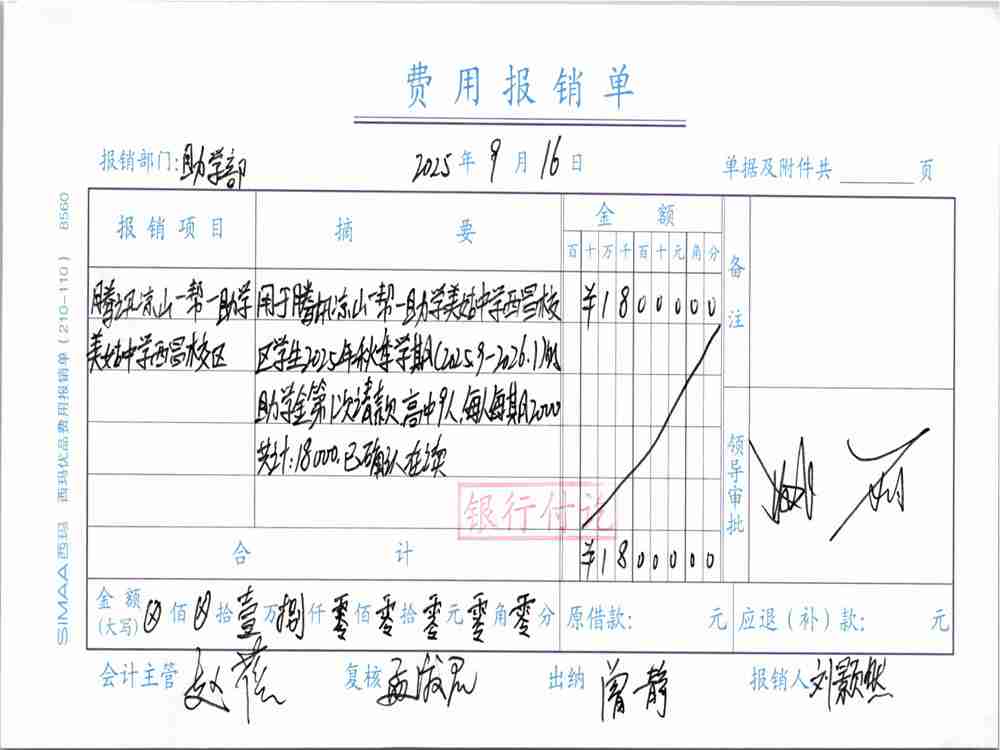 费用报销单
报销部门:助学部 2025年9月16日 单据及附件共 页
报销项目 摘要 金额 备注
百十万千百十元角分
腾讯凉山一帮一助学 用于腾讯凉山一帮一助学美姑中学西昌校 ¥1800000
美姑中学西昌校区 区学生2025年秋季学期(2025.9-2026.1)的
助学金第1次请款,高中9人,每人每期2000
共计:18000.已确认在读
领导审批
银行付讫
合计 ¥1800000
金额(大写) 佰 拾壹万捌仟零佰零拾零元零角零分 原借款: 元 应退(补)款: 元
会计主管 赵 复核 孟 出纳 曾静 报销人 刘颢然
SIMAA西玛 西玛优品费用报销单(210-110) 8560